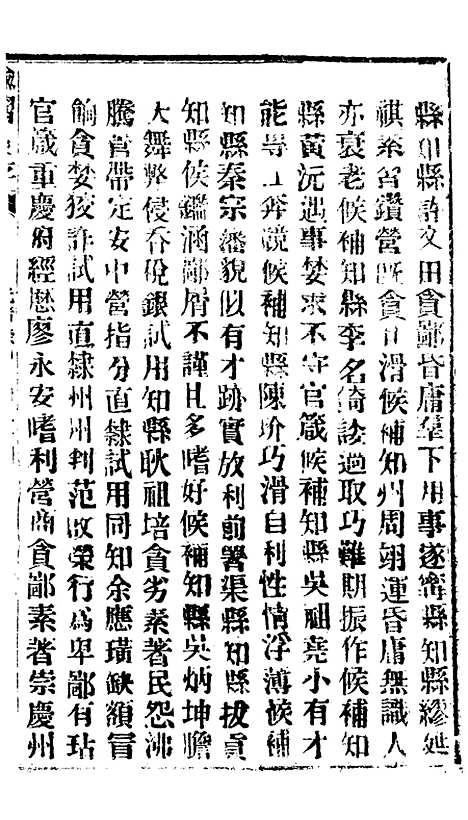 縣知縣許文田貪鄙昏庸羣下用事遂寧縣知縣繆延
祺素習鑽營既貪且滑候補知州周翊運昏庸無識人
亦衰老候補知縣李名綺諉過取巧難期振作候補知
縣黃沅遇事婪求不守官箴候補知縣吳祖堯小有才
能專工奔競候補知縣陳玠巧滑自利性情浮薄候補
知縣秦宗藩貌似有才跡實放利前署渠縣知縣拔貢
知縣侯鑑涵鄙屑不謹且多嗜好候補知縣吳炳坤膽
大舞弊侵吞稅銀試用知縣耿祖培貪劣素著民怨沸
騰管帶定安中營指分直隸試用同知余應璜缺額冒
餉貪婪狡詐試用直隸州州判范啟榮行為卑鄙有玷
官箴重慶府經歷廖永安嗜利營商貪鄙素著崇慶州